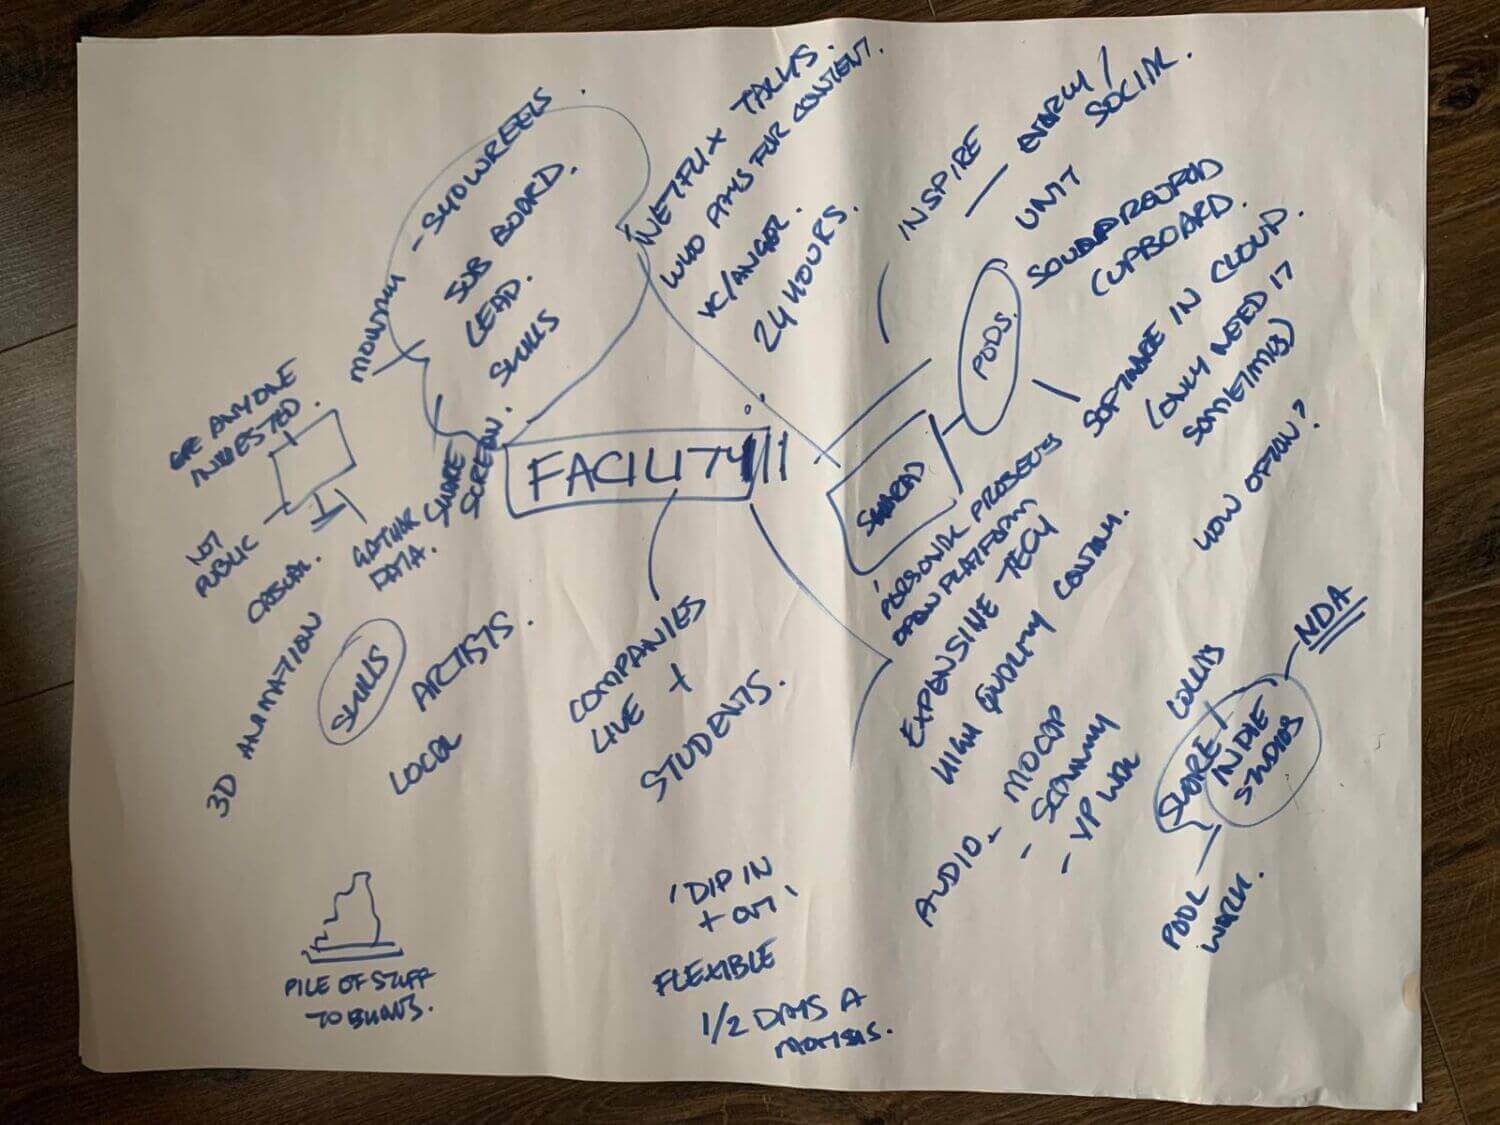 - SHOWREELS.
SUB BOARD.
LEAD.
SKILLS
NETFLIX TALKS.
WHO PAYS FOR CONTENT.
VC/ANGEL.
24 HOURS.
INSPIRE
SOCIAL.
UNIT
SOUNDPROOFED
CUPBOARD.
PODS.
SOFTWARE IN CLOUD.
(ONLY NEED IT
SOMETIMES)
HOW OFTEN?
ANYONE
INVESTED.
NOT
PUBLIC
CASUAL.
GATHER
DATA.
SHARE
SCREEN.
FACILITY
SHARED
PERSONAL PROJECTS
OPEN PLATFORM
EXPENSIVE TECH
HIGH QUALITY CONTENT.
3D ANIMATION
SKILLS
ARTISTS.
LOCAL
COMPANIES
LIVE +
STUDENTS.
AUDIO - MOCAP
-
- VP
COLLAB
NDA
SHARE
INDIE
STUDIOS
POOL
WORK.
PILE OF STUFF
TO
'DIP IN
+ OUT'
FLEXIBLE
1/2 DAYS A